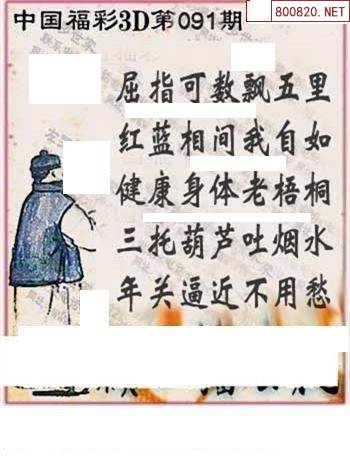 800820.NET
中国福彩3D第091期
屈指可数飘五里
红蓝相间我自如
健康身体老梧桐
三托葫芦吐烟水
年关逼近不用愁